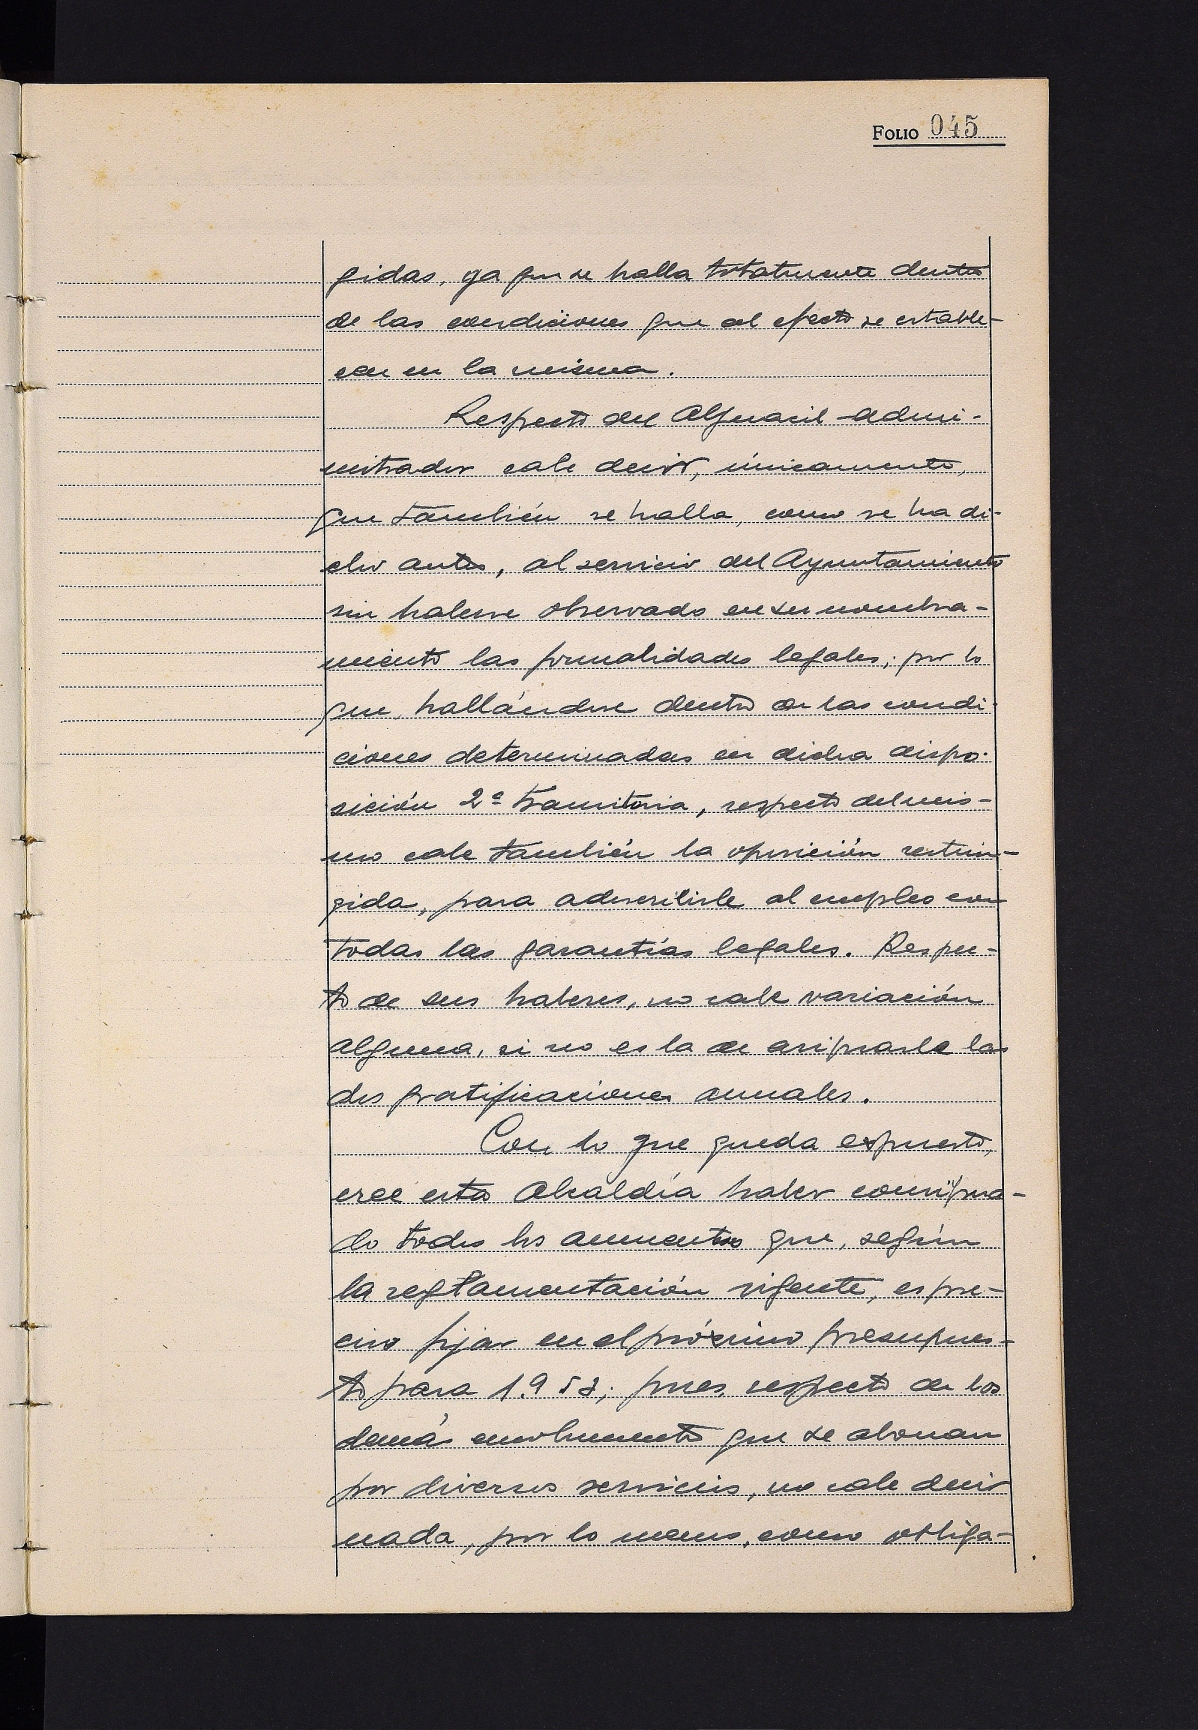 FOLIO 045
gidas, ya que se halla totalmente dentro
de las condiciones que al efecto se estable-
cen en la misma.
Respecto del Alguacil admi-
nistrador cabe decir, únicamente,
que también se halla, como se ha di-
cho antes, al servicio del Ayuntamiento
sin haberse observado en su nombra-
miento las formalidades legales; por lo
que, hallándose dentro de las condi-
ciones determinadas en dicha dispo-
sición 2ª transitoria, respecto del mis-
mo cabe también la oposición restrin-
gida, para adscribirle al empleo con
todas las garantías legales. Respec-
to de sus haberes, no cabe variación
alguna, si no es la de asignarle las
dos gratificaciones anuales.
Con lo que queda expuesto,
cree esta Alcaldía haber consigna-
do todos los aumentos que, según
la reglamentación vigente, es pre-
ciso fijar en el próximo presupues-
to para 1.953; pues respecto de los
demás emolumentos que se abonan
por diversos servicios, no cabe decir
nada, por lo menos, como obliga-